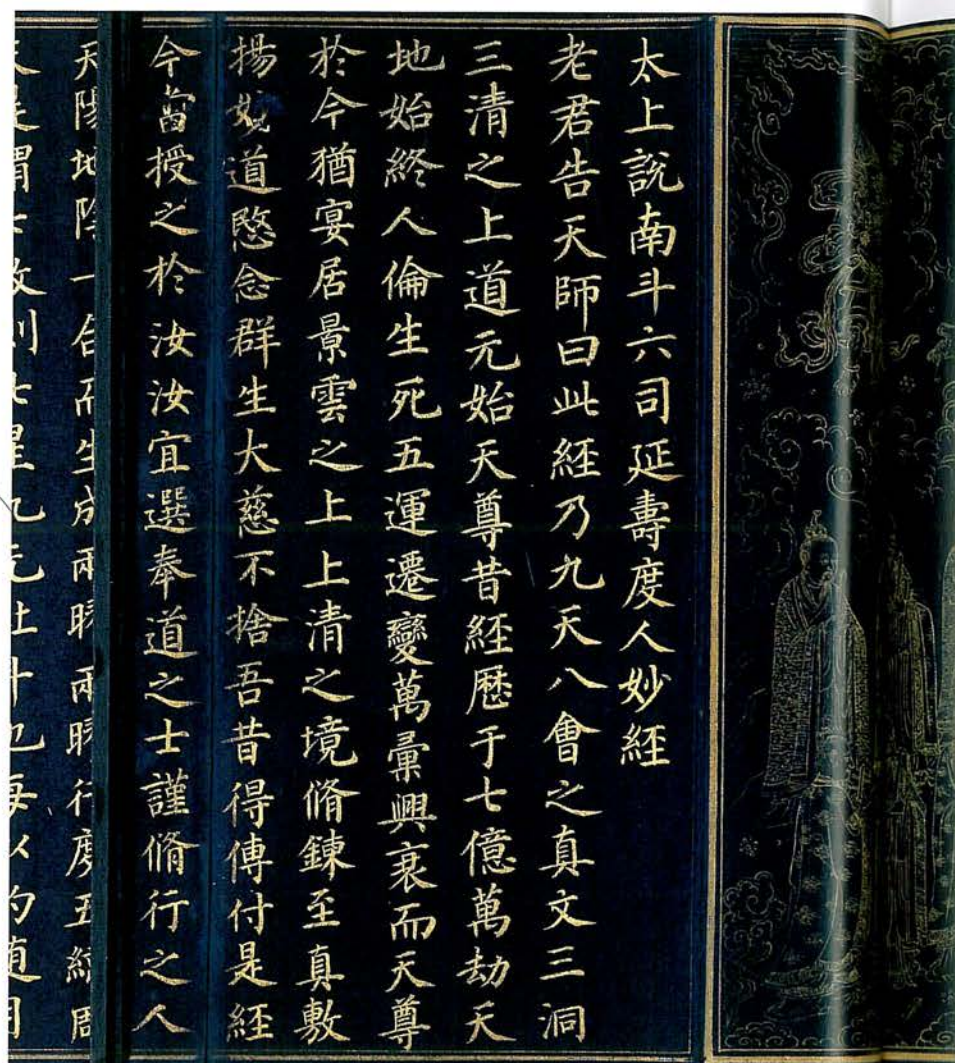 太上說南斗六司延壽度人妙經
老君告天師曰此經乃九天八會之真文三洞
三清之上道元始天尊昔經歷于七億萬劫天
地始終人倫生死五運遷變萬彙興衰而天尊
於今猶宴居景雲之上上清之境脩鍊至真敷
揚妙道愍念群生大慈不捨吾昔得傳付是經
今當授之於汝汝宜選奉道之士謹脩行之人
天陽地陰一合而生成兩曜兩曜行度五綵周